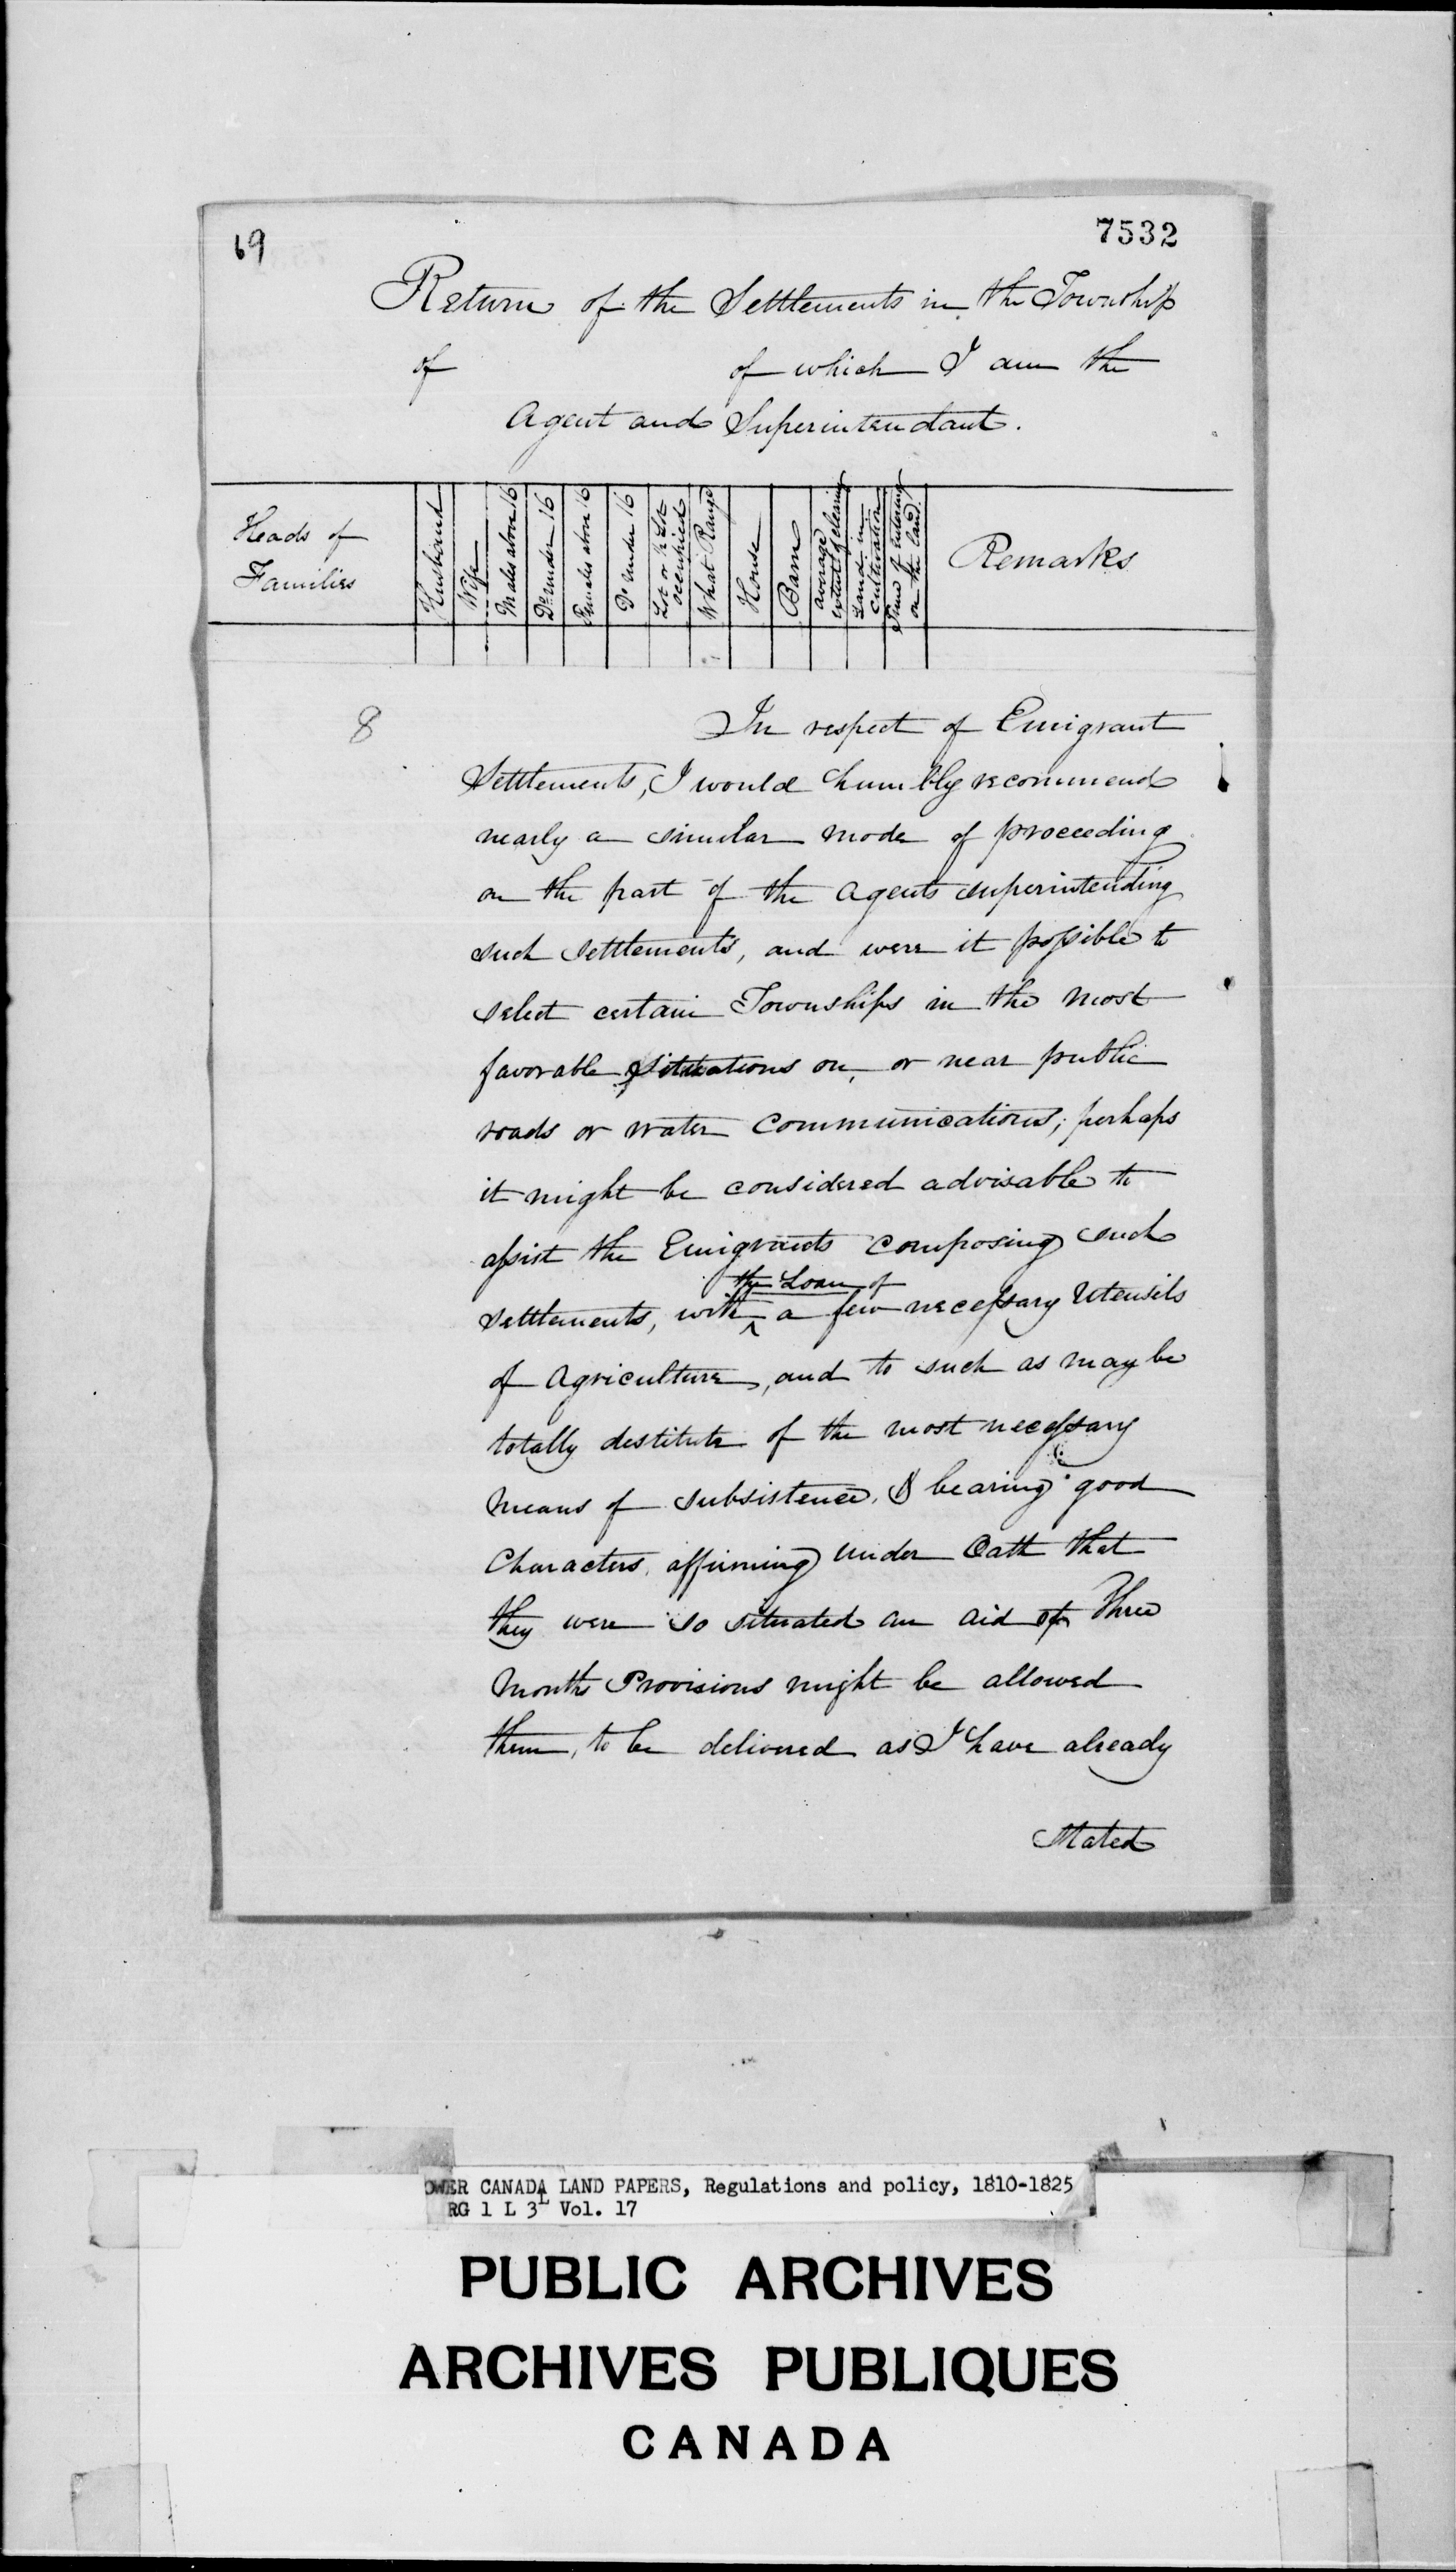 69
7532
Return of the Settlements in the Township
of of which I am the
Agent and Superintendant.
Heads of
Families
Husband
Wife
Males above 16
Do under 16
Females above 16
Do under 16
Lot or ½ Lot
occupied
What Range
House
Barn
average
extent of clearing
Land in
cultivation
Time of entering
on the land.
Remarks
8
In respect of Emigrant
Settlements, I would humbly recommend
nearly a similar mode of proceeding
on the part of the Agents superintending
such settlements, and were it possible to
select certain Townships in the most
favorable situations on, or near public
roads or water communications; perhaps
it might be considered advisable to
assist the Emigrants composing such
the Loan of
settlements, with ^ a few necessary Utensils
of Agriculture, and to such as may be
totally destitute of the most necessary
means of subsistence, & bearing good
Characters, affirming under Oath that
they were so situated an aid of Three
Months Provisions might be allowed
them, to be delivered as I have already
Stated
OWER CANADA LAND PAPERS, Regulations and policy, 1810-1825
RG 1 L 3L Vol. 17
PUBLIC ARCHIVES
ARCHIVES PUBLIQUES
CANADA